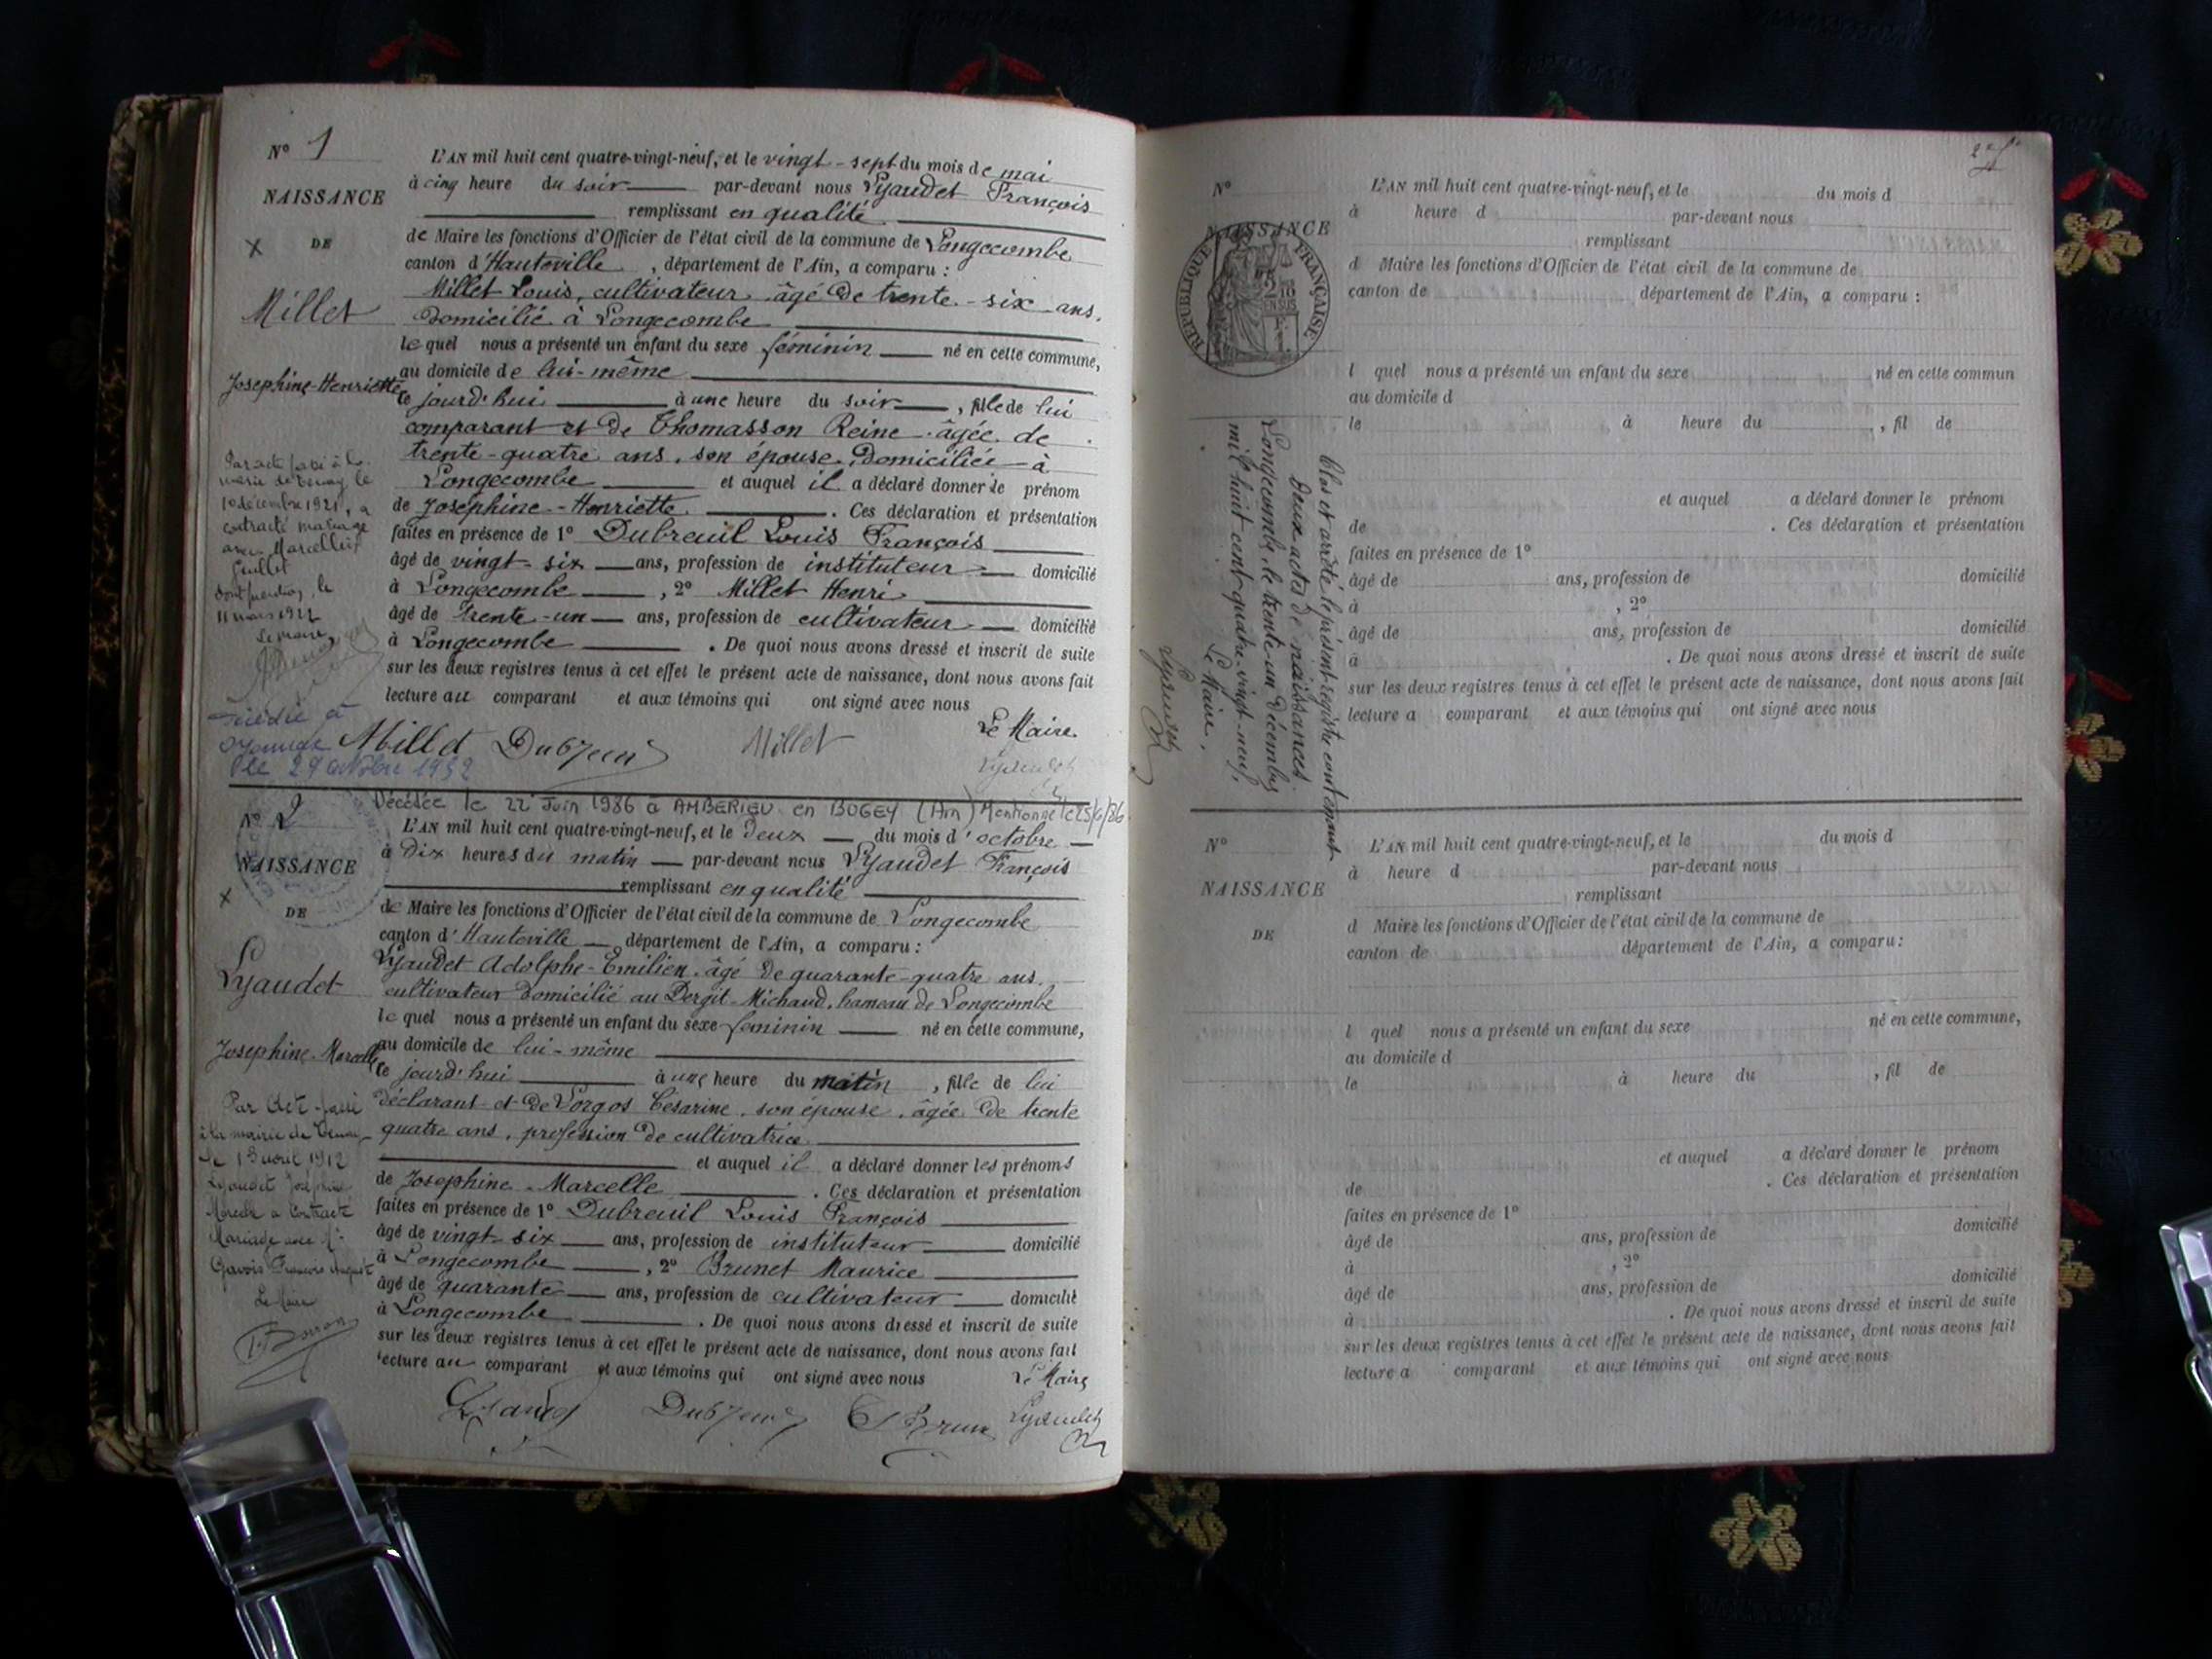 N° 1
NAISSANCE
DE
Millet
Josephine-Henriette
L'AN mil huit cent quatre-vingt-neuf, et le vingt-sept du mois de mai
à cinq heure du soir par-devant nous Lyaudet François
remplissant en qualité
de Maire les fonctions d'Officier de l'état civil de la commune de Longecombe
canton d'Hauteville, département de l'Ain, a comparu :
Millet Louis, cultivateur âgé de trente-six ans.
Domicilié à Longecombe
lequel nous a présenté un enfant du sexe féminin né en cette commune,
au domicile de lui-même
ce jourd'hui à une heure du soir, fille de lui
comparant et de Thomasson Reine âgée de
trente-quatre ans, son épouse, domiciliée à
Longecombe et auquel il a déclaré donner le prénom
de Joséphine-Henriette. Ces déclaration et présentation
faites en présence de 1° Dubreuil Louis François
âgé de vingt-six ans, profession de instituteur domicilié
à Longecombe, 2° Millet Henri
âgé de trente-un ans, profession de cultivateur domicilié
à Longecombe. De quoi nous avons dressé et inscrit de suite
sur les deux registres tenus à cet effet le présent acte de naissance, dont nous avons fait
lecture au comparant et aux témoins qui ont signé avec nous
Le Maire
Millet Dubreuil Millet Lyaudet
Par acte passé à la
mairie de Tenay le
10 décembre 1921, a
contracté mariage
avec Marcellin
Guillot
dont mention, le
11 mars 1922
Le maire,
Décédée à
Oyonnax
le 29 octobre 1952
Décédée le 22 Juin 1986 à AMBERIEU en BUGEY (Ain) Mentionné le 25/6/86
N° 2
NAISSANCE
DE
Lyaudet
Josephine-Marcelle
L'AN mil huit cent quatre-vingt-neuf, et le deux du mois d'octobre
à dix heures du matin par-devant nous Lyaudet François
remplissant en qualité
de Maire les fonctions d'Officier de l'état civil de la commune de Longecombe
canton d'Hauteville département de l'Ain, a comparu :
Lyaudet Adolphe-Emilien âgé de quarante-quatre ans,
cultivateur domicilié au Dergit-Michaud, hameau de Longecombe
lequel nous a présenté un enfant du sexe féminin né en cette commune,
au domicile de lui-même
ce jourd'hui à une heure du matin, fille de lui
déclarant et de Vorgos Césarine, son épouse, âgée de trente
quatre ans, profession de cultivatrice
et auquel il a déclaré donner les prénoms
de Josephine-Marcelle. Ces déclaration et présentation
faites en présence de 1° Dubreuil Louis François
âgé de vingt-six ans, profession de instituteur domicilié
à Longecombe, 2° Brunet Maurice
âgé de quarante ans, profession de cultivateur domicilié
à Longecombe. De quoi nous avons dressé et inscrit de suite
sur les deux registres tenus à cet effet le présent acte de naissance, dont nous avons fait
lecture au comparant et aux témoins qui ont signé avec nous
Le Maire
Lyaudet Dubreuil Brunet Lyaudet
Par Acte passé
à la mairie de Tenay
le 13 avril 1912
Lyaudet Joséphine
Marcelle a Contracté
Mariage avec Mr
François Auguste
Le Maire
N°
NAISSANCE
REPUBLIQUE FRANÇAISE
2/10
EN SUS
L'AN mil huit cent quatre-vingt-neuf, et le du mois d
à heure d par-devant nous
remplissant
d Maire les fonctions d'Officier de l'état civil de la commune de
canton de département de l'Ain, a comparu :
l quel nous a présenté un enfant du sexe né en cette commun
au domicile d
le à heure du , fil de
et auquel a déclaré donner le prénom
de . Ces déclaration et présentation
faites en présence de 1°
âgé de ans, profession de domicilié
à , 2°
âgé de ans, profession de domicilié
à . De quoi nous avons dressé et inscrit de suite
sur les deux registres tenus à cet effet le présent acte de naissance, dont nous avons fait
lecture a comparant et aux témoins qui ont signé avec nous
Clos et arrêté le présent registre contenant
Deux actes de naissances
Longecombe, le trente-un Décembre
mil huit cent quatre-vingt-neuf,
Le Maire,
Lyaudet
N°
NAISSANCE
DE
L'AN mil huit cent quatre-vingt-neuf, et le du mois d
à heure d par-devant nous
remplissant
d Maire les fonctions d'Officier de l'état civil de la commune de
canton de département de l'Ain, a comparu :
l quel nous a présenté un enfant du sexe né en cette commune,
au domicile d
le à heure du , fil de
et auquel a déclaré donner le prénom
de . Ces déclaration et présentation
faites en présence de 1°
âgé de ans, profession de domicilié
à , 2°
âgé de ans, profession de domicilié
à . De quoi nous avons dressé et inscrit de suite
sur les deux registres tenus à cet effet le présent acte de naissance, dont nous avons fait
lecture a comparant et aux témoins qui ont signé avec nous